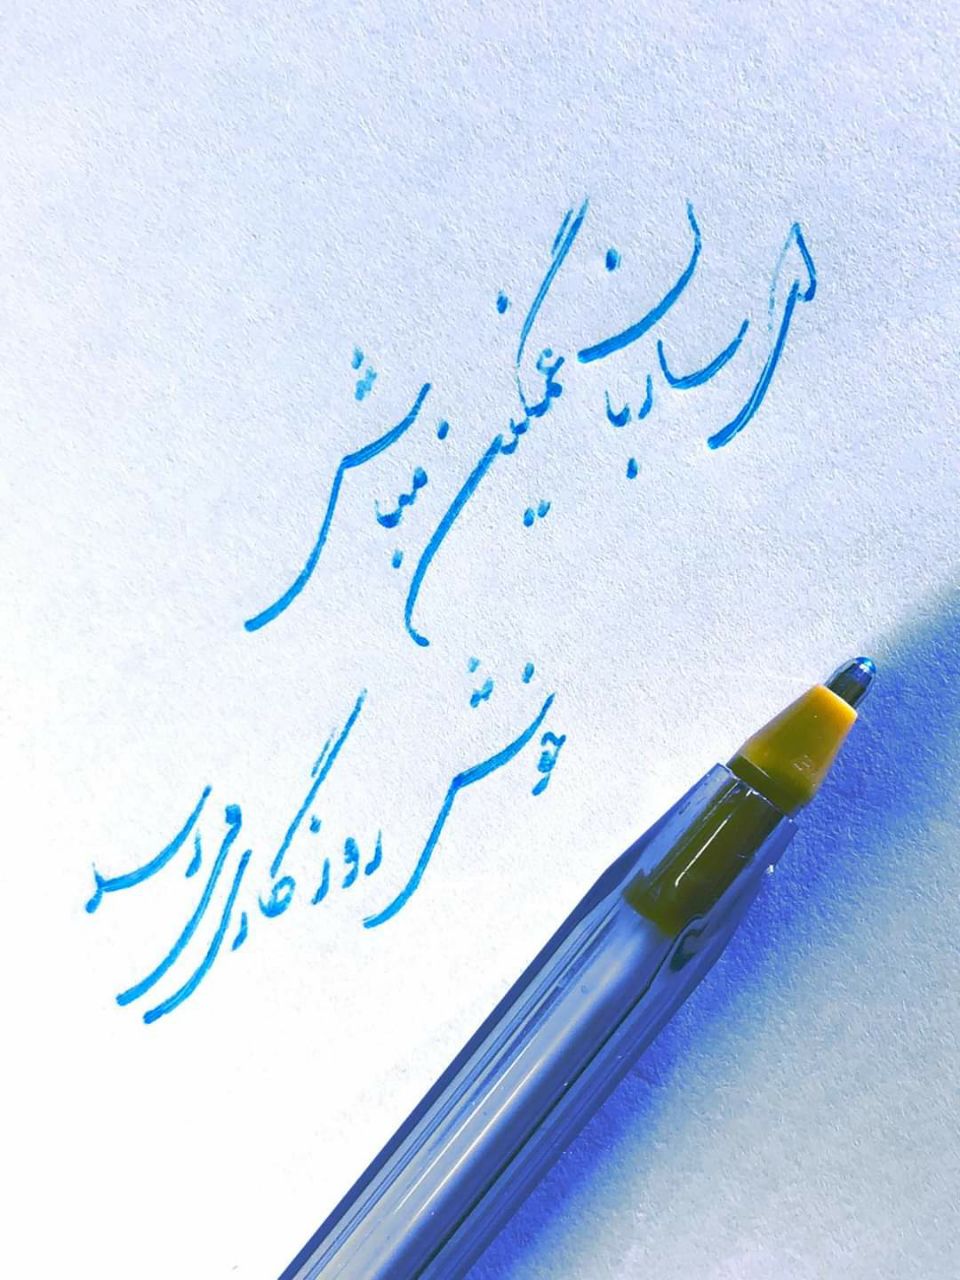 ای ساربان غمگین مباش
خوش روزگاری می رسد